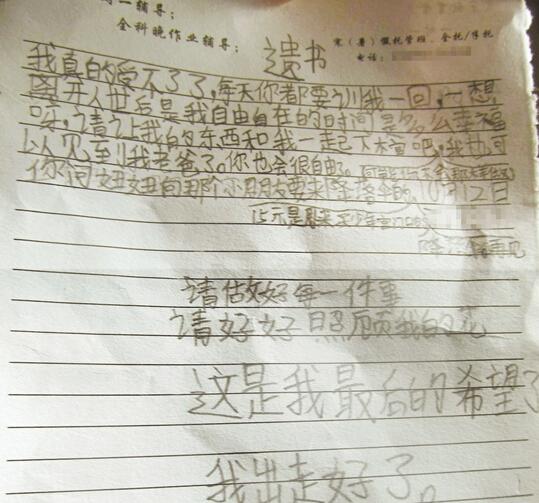 一辅导:
全科晚作业辅导:
寒(暑)假托管班 全托/半托
电话:
遗书
我真的受不了了,每天你都要训我一回,一想
离开人世后是我自由自在的时间是多么幸福
呀,请让我的东西和我一起下木棺吧,我也可
以见到我老爸了。你也会很自由。
你问妞妞向那个小朋友要降落伞的10月12日
15元是
降落伞 再见
请做好每一件事
请好好照顾我的花
这是我最后的希望了
我出走好了。